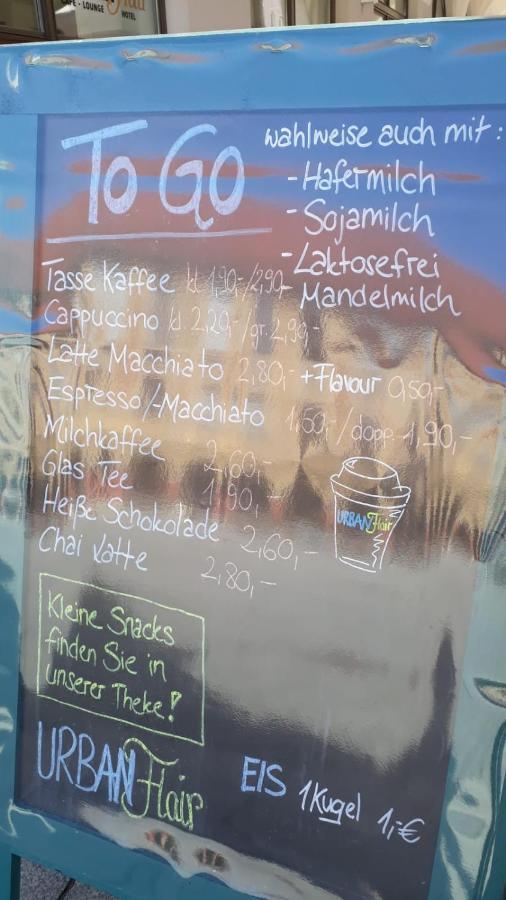 CAFE · LOUNGE
HOTEL
TO GO
wahlweise auch mit:
- Hafermilch
- Sojamilch
- Laktosefrei
Mandelmilch
Tasse Kaffee kl. 1,90,-/2,90,-
Cappuccino kl. 2,20,-/gr. 2,90,-
Latte Macchiato 2,80,- +Flavour 0,50,-
Espresso/-Macchiato 1,50,-/dopp. 1,90,-
Milchkaffee 2,60,-
Glas Tee 1,80,-
Heiße Schokolade 2,60,-
Chai Latte 2,80,-
URBAN Flair
Kleine Snacks
finden Sie in
unserer Theke!
URBAN Flair
EIS 1 Kugel 1,-€